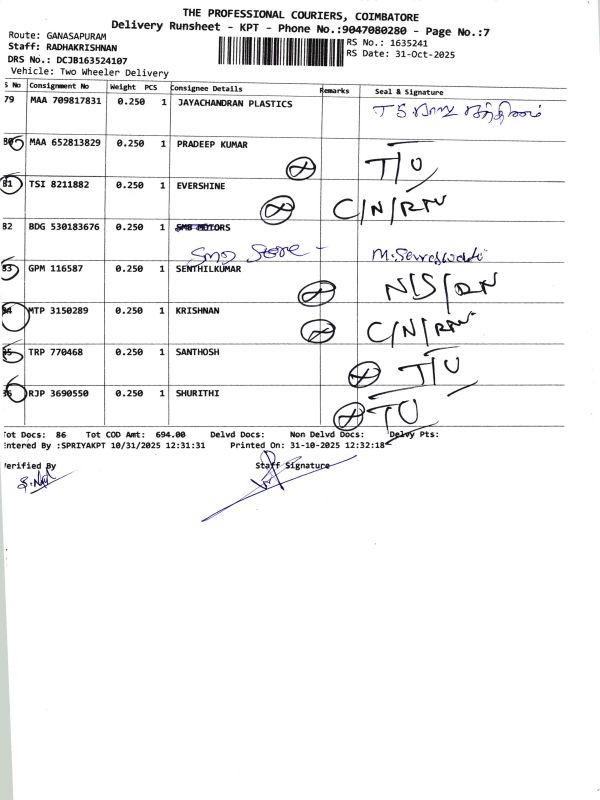 THE PROFESSIONAL COURIERS, COIMBATORE
Delivery Runsheet - KPT - Phone No.:9047080280 - Page No.:7
Route: GANASAPURAM
Staff: RADHAKRISHNAN
RS No.: 1635241
DRS No.: DCJB163524107
RS Date: 31-Oct-2025
Vehicle: Two Wheeler Delivery
S No Consignment No Weight PCS Consignee Details Remarks Seal & Signature
79 MAA 709817831 0.250 1 JAYACHANDRAN PLASTICS
MAA 652813829 0.250 1 PRADEEP KUMAR
T/U
81 TSI 8211882 0.250 1 EVERSHINE
C/N/RN
82 BDG 530183676 0.250 1 SMB MOTORS
SMD Store -
83 GPM 116587 SENTHILKUMAR
N/S/RN
84 MTP 3150289 0.250 1 KRISHNAN
C/N/RN
85 TRP 770468 0.250 1 SANTHOSH
T/U
86 RJP 3690550 0.250 1 SHURITHI
TU
Tot Docs: 86 Tot COD Amt: 694.00 Delvd Docs: Non Delvd Docs: Delvy Pts:
Entered By :SPRIYAKPT 10/31/2025 12:31:31 Printed On: 31-10-2025 12:32:18
Verified By Staff Signature